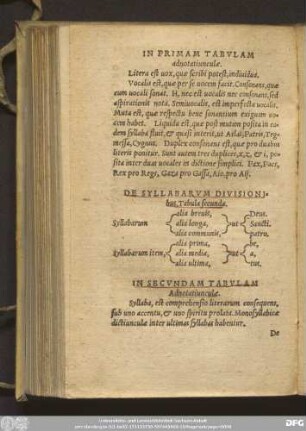 IN PRIMAM TABVLAM
adnotatiunculæ.
Litera est uox, quæ scribi potest, indiuidua.
Vocalis est, quæ per se uocem facit. Consonans, quæ
cum uocali sonat. H, nec est uocalis nec consonans, sed
aspirationis nota. Semiuocalis, est imperfecta uocalis.
Muta est, quæ respectu bene sonantium exiguam uo-
cem habet. Liquida est, quæ post mutam posita in ea-
dem syllaba fluit, & quasi interit, ut Atlas, Patris, Teg-
messa, Cygnus. Duplex consonans est, quæ pro duabus
literis ponitur. Sunt autem tres duplices, x, z, & i, po-
sita inter duas uocales in dictione simplici. Pax, Pacs,
Rex pro Regs, Gaza pro Gassa, Aio, pro Aiji.
DE SYLLABARVM DIVISIONI-
bus Tabula secunda.
Syllabarum
alia breuis,
alia longa,
alia communis,
ut
Deus.
Sancti.
patris.
Syllabarum item,
alia prima,
alia media,
alia ultima,
ut
be,
a,
tus.
IN SECVNDAM TABVLAM
Adnotatiunculæ.
Syllaba, est comprehensio literarum consequens,
sub uno accentu, & uno spiritu prolata. Monosyllabicæ
dictiunculæ inter ultimas syllabas habentur.
De